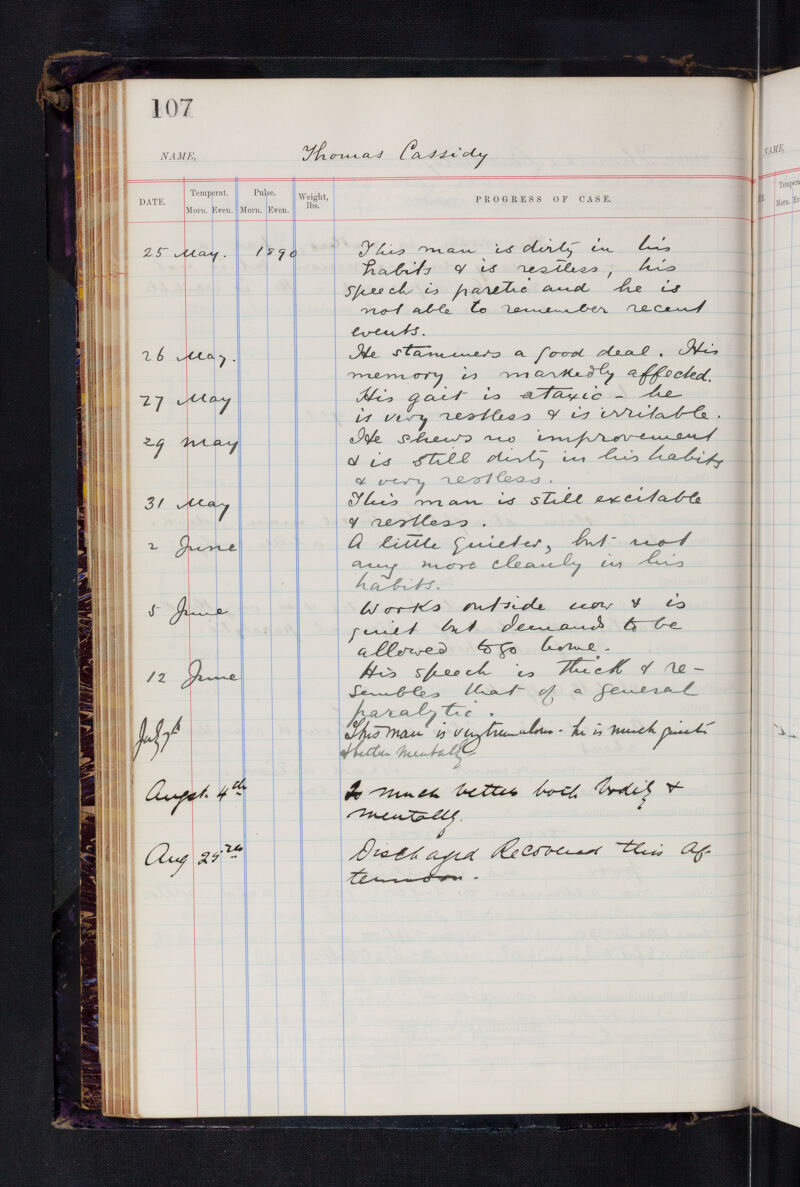 107
NAME, Thomas Cassidy
DATE. Temperat. Pulse. Weight, lbs. PROGRESS OF CASE.
Morn. Even. Morn. Even.
25 May. 1890 This man is dirty in his
habits & is restless, his
speech is paretic and he is
not able to remember recent
events.
26 May. He stammers a good deal. His
memory is markedly affected.
27 May His gait is ataxic - he
is very restless & is irritable.
29 May He shews no improvement
& is still dirty in his habits
& very restless.
31 May This man is still excitable
& restless.
2 June A little quieter, but not
any more cleanly in his
habits.
5 June Works outside now & is
quiet but demands to be
allowed to go home.
12 June His speech is thick & re-
sembles that of a general
paralytic.
July 7th This man is very tremulous - he is much quieter
& better mentally
Augst. 4th Is much better both bodily &
mentally.
Aug 25th Dischaged Recovered this af
ternoon.
NAME,
Tempera
Morn. Ev